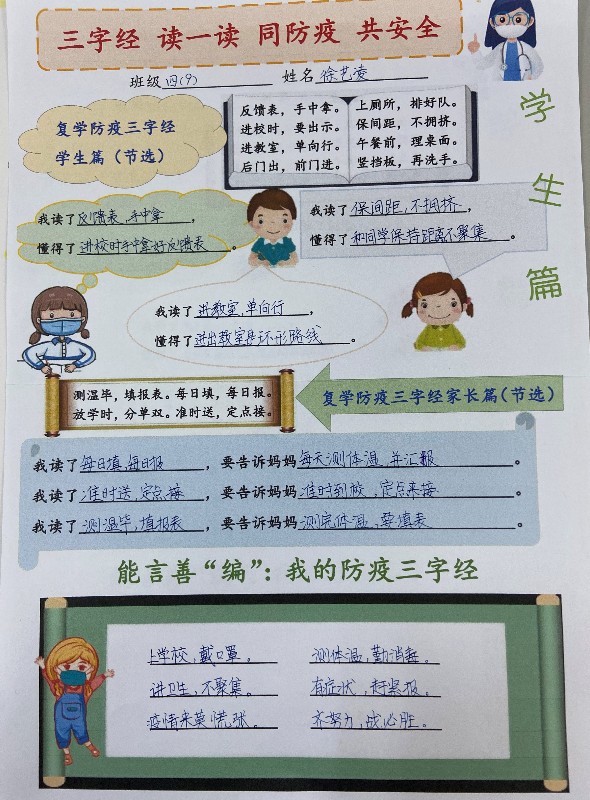 三字经 读一读 同防疫 共安全
班级 四(9) 姓名 徐艺凌
学生篇
复学防疫三字经
学生篇（节选）
反馈表，手中拿。
进校时，要出示。
进教室，单向行。
后门出，前门进。
上厕所，排好队。
保间距，不拥挤。
午餐前，理桌面。
竖挡板，再洗手。
我读了反馈表，手中拿，
懂得了进校时手中拿好反馈表。
我读了保间距，不拥挤，
懂得了和同学保持距离不聚集。
我读了进教室，单向行，
懂得了进出教室是环形路线。
测温毕，填报表。每日填，每日报。
放学时，分单双。准时送，定点接。
复学防疫三字经家长篇（节选）
我读了每日填，每日报，要告诉妈妈每天测体温，并汇报。
我读了准时送，定点接，要告诉妈妈准时到校，定点来接。
我读了测温毕，填报表，要告诉妈妈测完体温，要填表。
能言善“编”：我的防疫三字经
上学校，戴口罩。 测体温，勤消毒。
讲卫生，不聚集。 有症状，赶紧报。
疫情来莫慌张。 齐努力，战必胜。